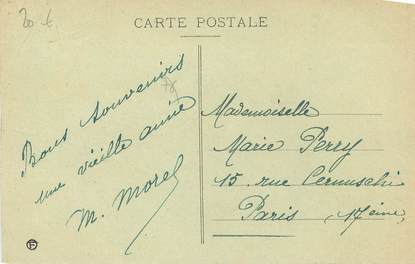 20 €
CARTE POSTALE
76
Bons souvenirs
une vieille amie
M. Morel
Mademoiselle
Marie Perry
15. rue Cernuschi
Paris 17ème